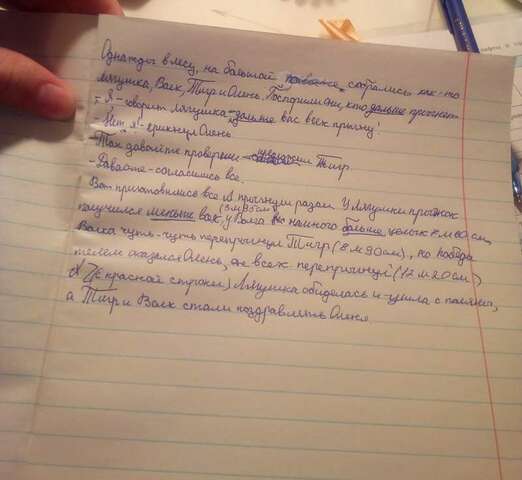 Однажды в лесу, на большой поляне, собрались как-то
лягушка, Волк, Тигр и Олень. Поспорили они, кто дальше прыгнет.
- Я - говорит лягушка - дальше вас всех прыгну!
- Нет я - крикнул Олень.
- Так давайте проверим - Тигр.
- Давайте - согласились все.
Вот приготовились все и прыгнули разом. У лягушки прыжок
получился меньше всех, (3м 95см) у Волка намного больше целых 8м 80см,
Волка чуть-чуть перепрыгнул Тигр (8м 90см), но победи
телем оказался Олень, он всех перепрыгнул (12м 20см)
(с красной строки) Лягушка обиделась и ушла с поляны,
а Тигр и Волк стали поздравлять Оленя.